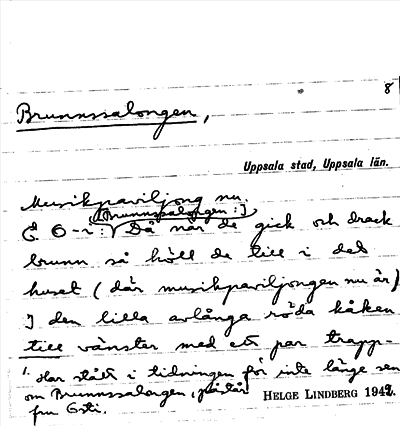 8
Brunnssalongen,
Uppsala stad, Uppsala län.
Musikpaviljong nu.
[Brunnssalongen:]
E. O-i: Då när de gick och drack
brunn så höll de till i det
huset (där musikpaviljongen nu är)
I den lilla avlånga röda kåken
till vänster med ett par trapp-
1. Har stått i tidningen för inte länge sen
om Brunnssalongen, påstår
fru Östi.
HELGE LINDBERG 1942.